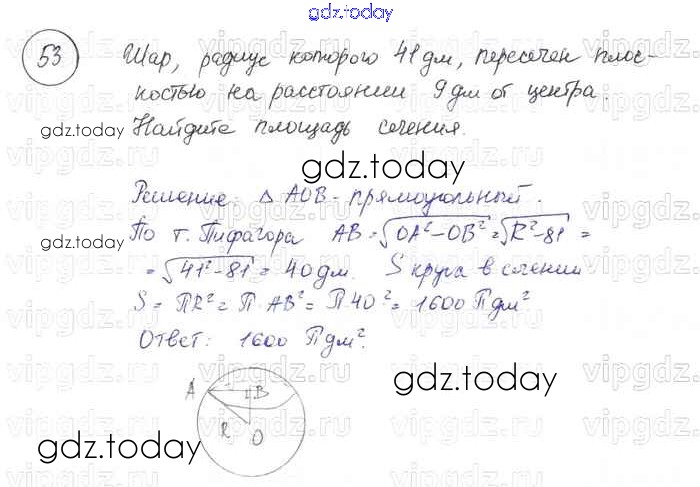 gdz.today
53 Шар, радиус которого 41 дм, пересечен плос-
костью на расстоянии 9 дм от центра.
gdz.today Найдите площадь сечения.
gdz.today
Решение. △ AOB - прямоугольный.
По т. Пифагора AB = √OA² - OB² = √R² - 81 =
gdz.today
= √41² - 81 = 40 дм. S круга в сечении
S = ПR² = П · AB² = П 40² = 1600 П дм²
Ответ: 1600 П дм².
A B
gdz.today
R O
gdz.today
gdz.today